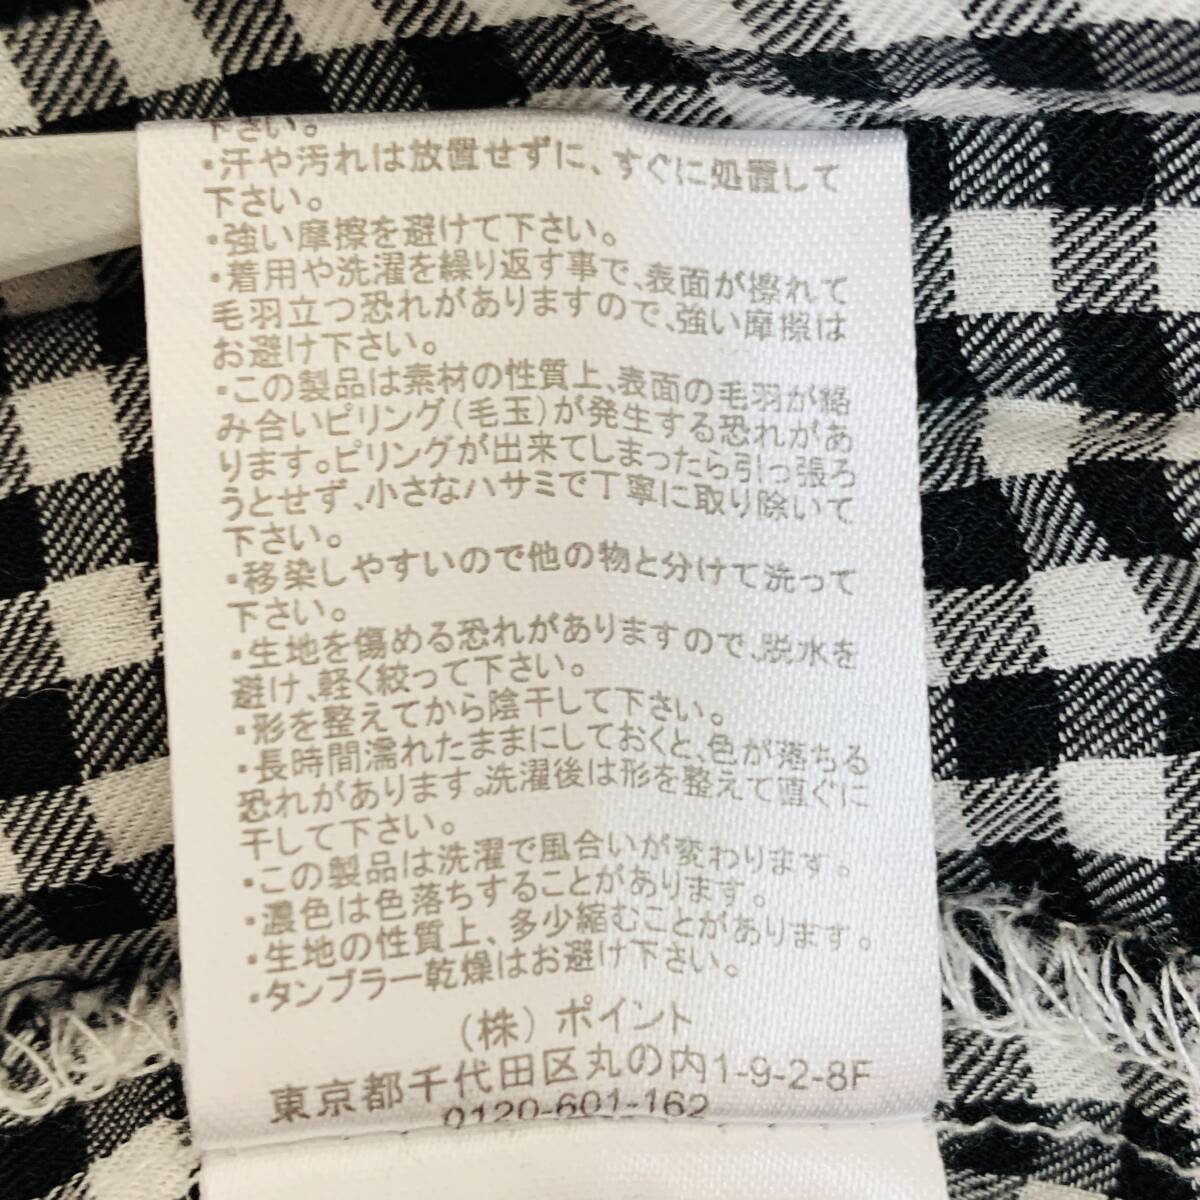 下さい。
・汗や汚れは放置せずに、すぐに処置して
下さい。
・強い摩擦を避けて下さい。
・着用や洗濯を繰り返す事で、表面が擦れて
毛羽立つ恐れがありますので、強い摩擦は
お避け下さい。
・この製品は素材の性質上、表面の毛羽が絡
み合いピリング(毛玉)が発生する恐れがあ
ります。ピリングが出来てしまったら引っ張ろ
うとせず、小さなハサミで丁寧に取り除いて
下さい。
・移染しやすいので他の物と分けて洗って
下さい。
・生地を傷める恐れがありますので、脱水を
避け、軽く絞って下さい。
・形を整えてから陰干して下さい。
・長時間濡れたままにしておくと、色が落ちる
恐れがあります。洗濯後は形を整えて直ぐに
干して下さい。
・この製品は洗濯で風合いが変わります。
・濃色は色落ちすることがあります。
・生地の性質上、多少縮むことがあります。
・タンブラー乾燥はお避け下さい。
(株)ポイント
東京都千代田区丸の内1-9-2-8F
0120-601-162